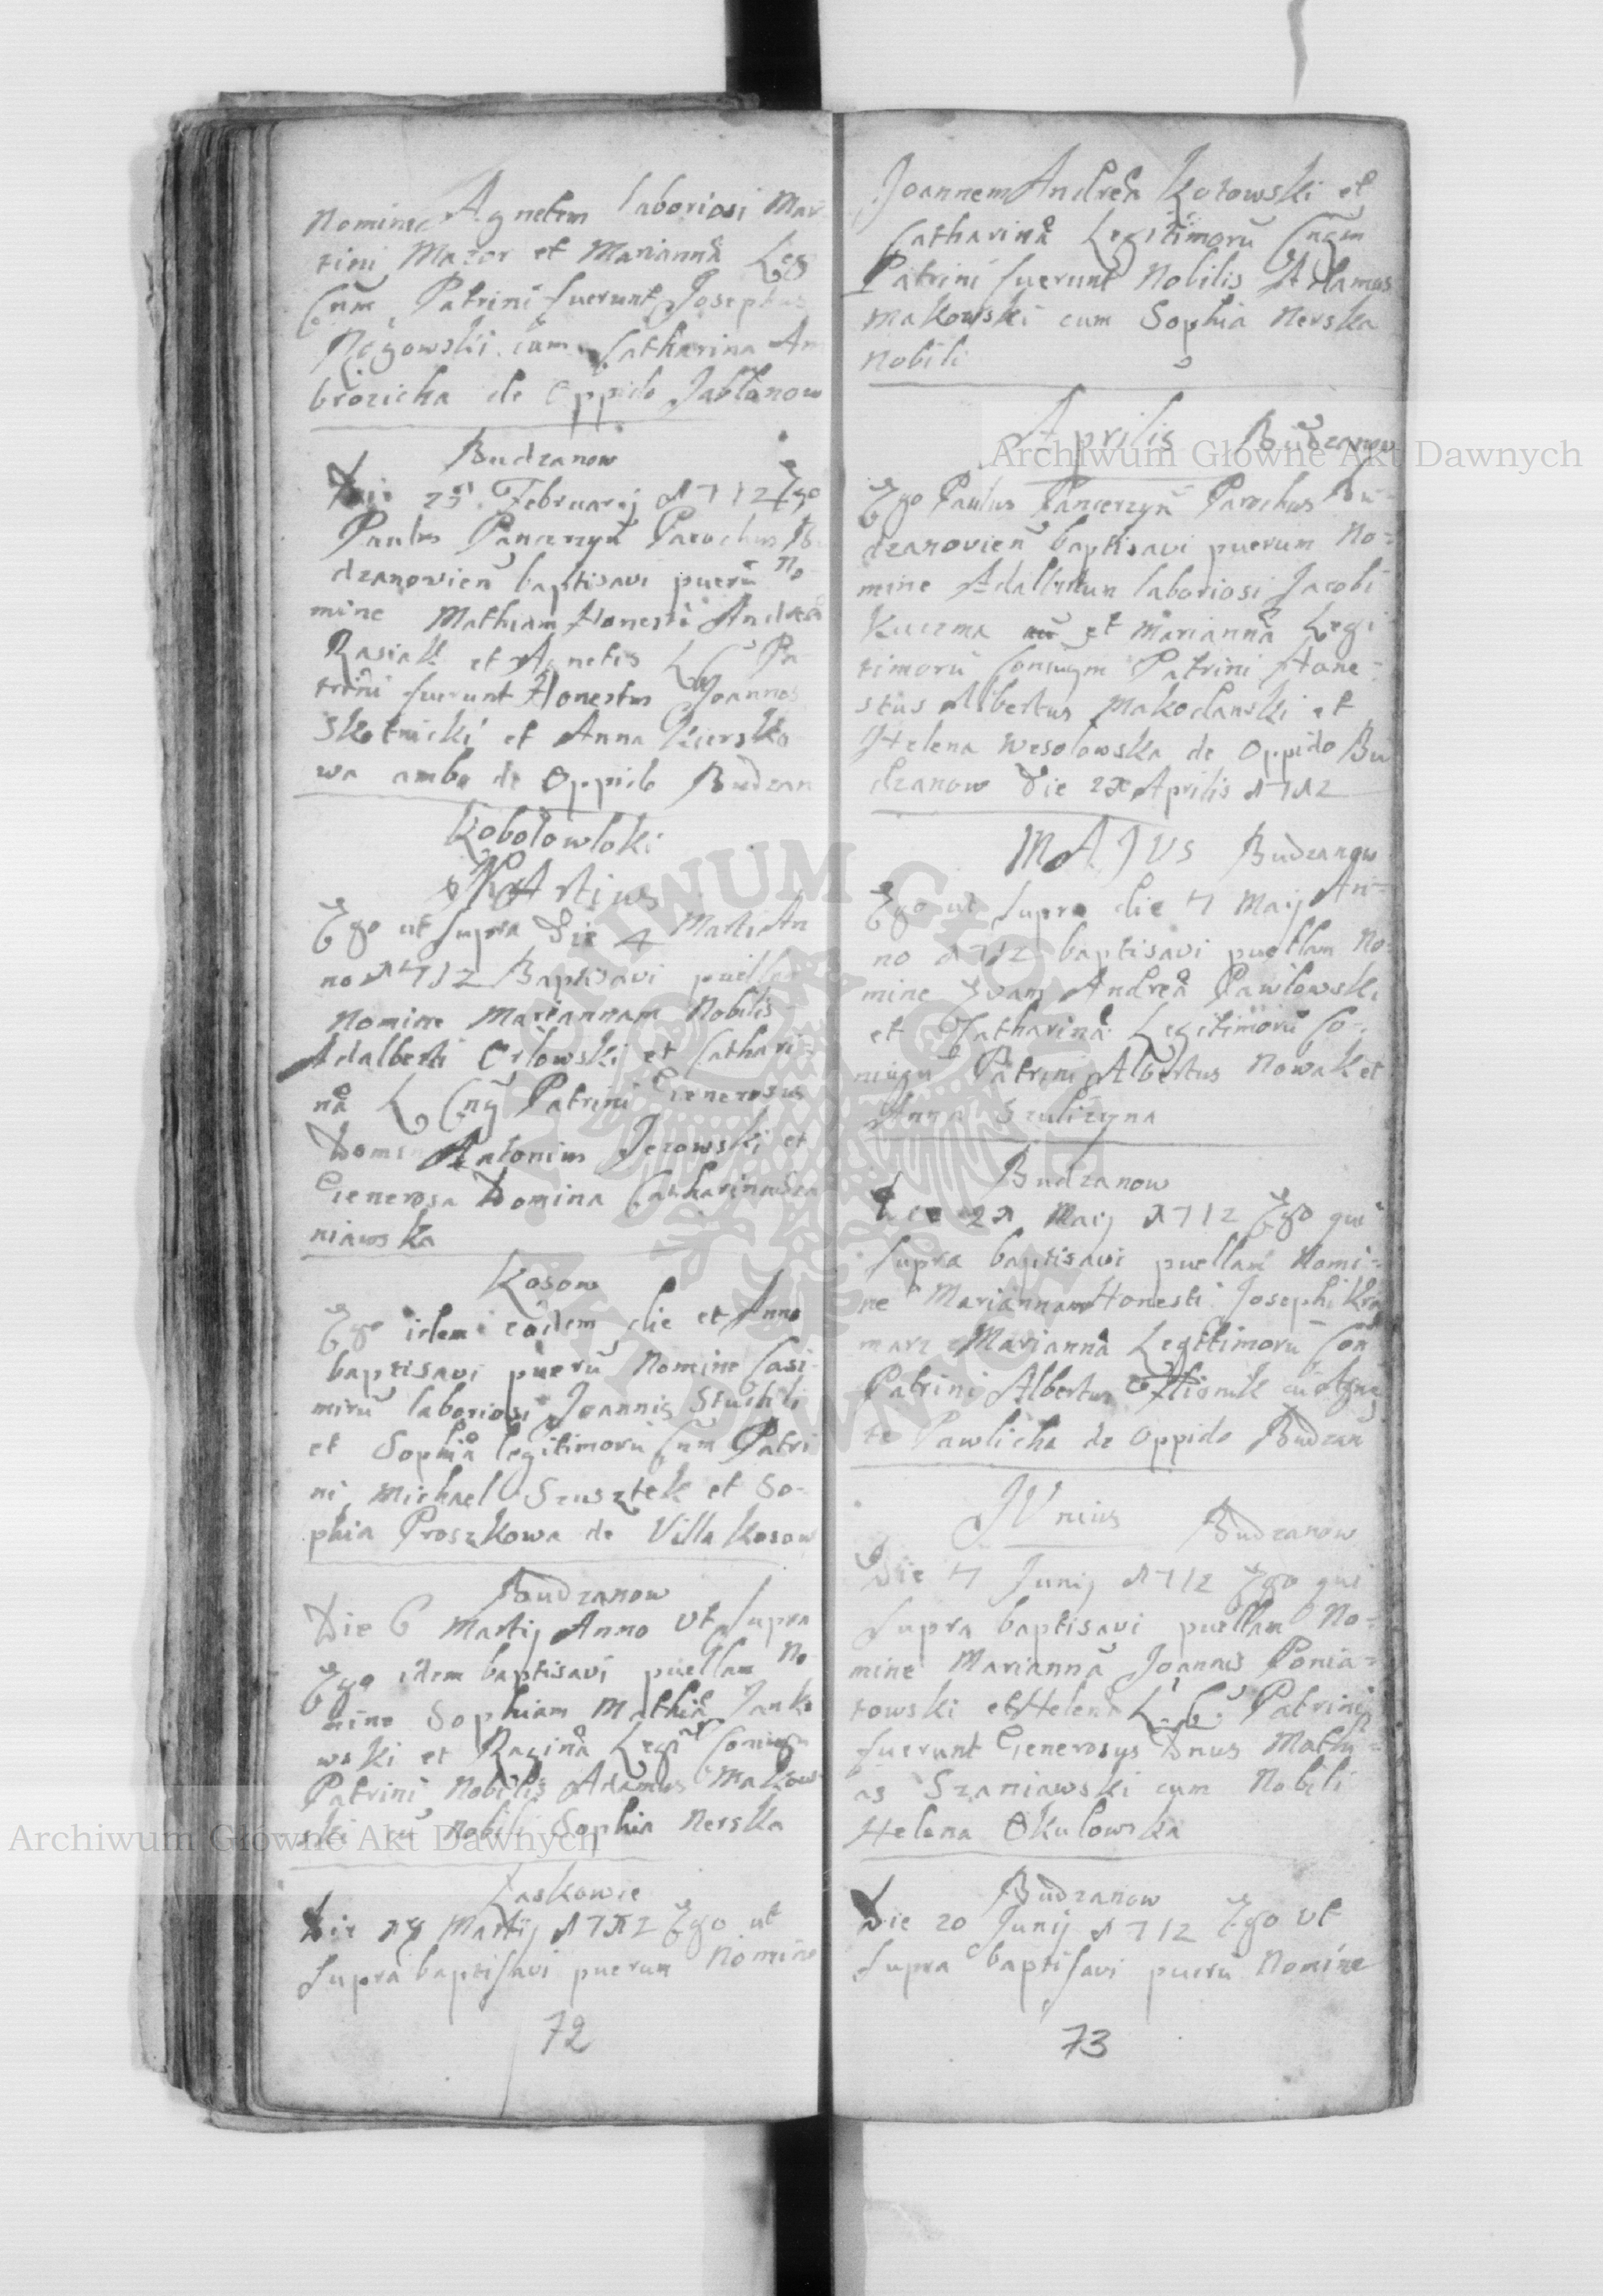 Nomine Agnetem laboriosi Mar
tini Mazor et Mariannã Leg
Cnm Patrini fuerunt Josephus
Rogowski cum Catharina Am
brozicha de Oppido Jablonow
Budzanow
Die 25 Februarij 1712 Ego
Paulus Pancerzyn Parochus Bu
dzanowieñ baptisavi puerũ No-
mine Mathiam Honesti Andreã
Rasiak et Agnetis L C Pa-
trini fuerunt Honestus Joannes
Skotnicki et Anna Kiersko
wa ambo de Oppido Budzan
Kobolowloki
MARtius
Ego ut Supra Die 4 Martij An
no 1712 Baptisavi puellam
Nomine Mariannam Nobilis
Adalberti Orlowski et Cathari-
nã L Cng Patrini Generosus
Domin Antonius Jezowski et
Generosa Domina Catharina Sza
niawska
Kosow
Ego idem eodem die et Anno
baptisavi puerũ Nomine Casi-
mirũ laboriosi Joannis Stuchli
et Sophiã legitimorũ Cnm Patri
ni Michael Szusztek et So-
phia Proszkowa de Villa Kosow
Budzanow
Die 6 Martij Anno Ut Supra
Ego idem baptisavi puellam No-
mine Sophiam Mathiã Janko
wski et Reginã Legit Coniugm
Patrini Nobilis Adamus Makow
ski cũ Nobili Sophia Nerska
Laskowie
Die 19 Martij 1712 Ego ut
Supra baptisavi puerum Nomine
72
Joannem Andreã Kotowski et
Catharinã Legitimorũ Cngm
Patrini fuerunt Nobilis Adamus
Makowski cum Sophia Nerska
Nobili
Aprilis Budzanow
Ego Paulus Pancerzyn Parochus Bu-
dzanovieñ baptisavi puerum No-
mine Adalbertum laboriosi Jacobi
Kuczma et Mariannã Legi-
timorũ Coniugm Patrini Hone-
stus Albertus Makodanski et
Helena Wesolowska de Oppido Bu
dzanow Die Aprilis 1712
MAJUS Budzanow
Ego ut Supra die 7 Maij An-
no 1712 baptisavi puellam No-
mine Evam Andreã Pawlowski
et Catharinã Legitimorũ Co-
niugũ Patrini Albertus Nowak et
Anna Szuliczyna
Budzanow
Die 21 Maij 1712 Ego qui
Supra baptisavi puellam Nomi-
ne Mariannam Honesti Josephi Kra
marz Mariannã Legitimorũ Con
Patrini Albertus cũ Agne
te Pawlicha de Oppido Budzan
JUnius Budzanow
Die 7 Junij 1712 Ego qui
Supra baptisavi puellam No-
mine Mariannã Joannis Ponia-
towski et Helenã L. C. Patrini
fuerunt Generosus Dnus Mathi-
as Szaniawski cum Nobili
Helena Okulowska
Budzanow
Die 20 Junij 1712 Ego Ut
Supra baptisavi puerũ Nomine
73
Archiwum Główne Akt Dawnych
Archiwum Główne Akt Dawnych
ARCHIWUM GŁÓWNE AKT DAWNYCH